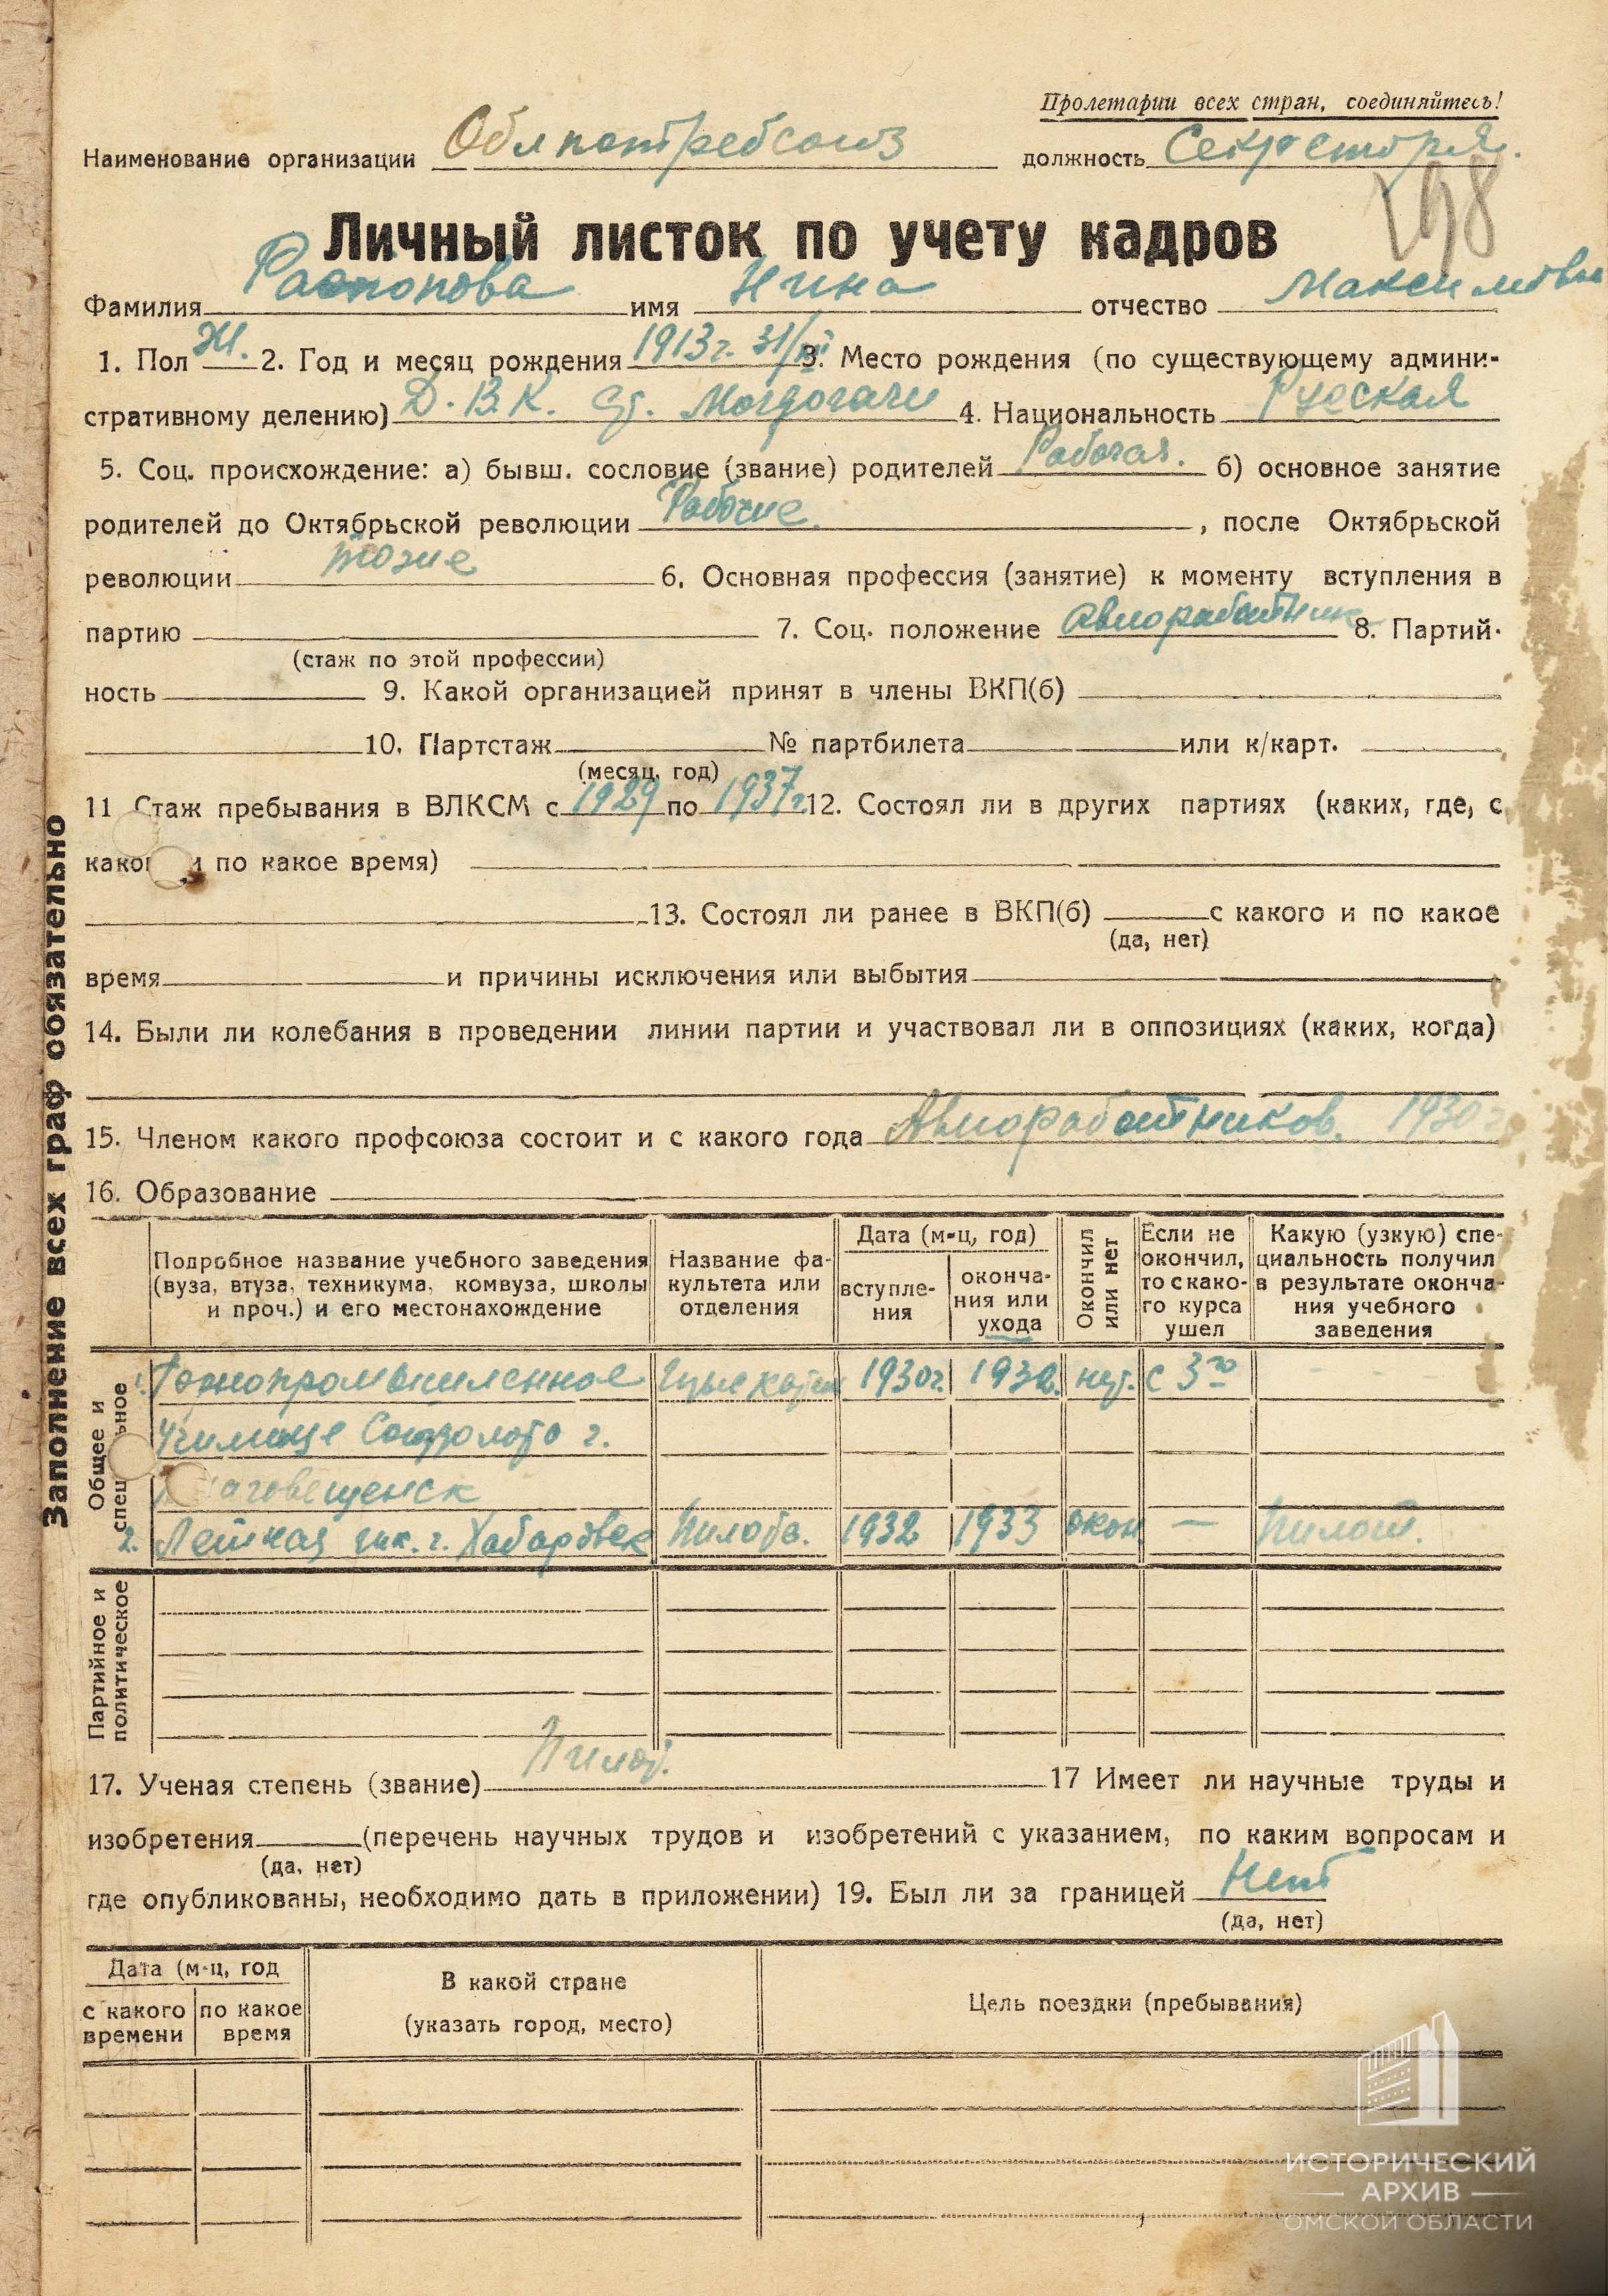 Пролетарии всех стран, соединяйтесь!
Наименование организации Облпотребсоюз должность Секретаря.
198
Личный листок по учету кадров
Фамилия Распопова имя Нина отчество Максимовна
1. Пол Ж. 2. Год и месяц рождения 1913г. 31/XII 3. Место рождения (по существующему админи-
стративному делению) Д.В.К. ст. Могдогачи 4. Национальность Русская
5. Соц. происхождение: а) бывш. сословие (звание) родителей Рабочая. б) основное занятие
родителей до Октябрьской революции Рабочие, после Октябрьской
революции тоже 6. Основная профессия (занятие) к моменту вступления в
партию 7. Соц. положение Авиоработник 8. Партий-
(стаж по этой профессии)
ность 9. Какой организацией принят в члены ВКП(б)
10. Партстаж № партбилета или к/карт.
(месяц, год)
11 Стаж пребывания в ВЛКСМ с 1929 по 1937г. 12. Состоял ли в других партиях (каких, где, с
како и по какое время)
13. Состоял ли ранее в ВКП(б) с какого и по какое
(да, нет)
время и причины исключения или выбытия
14. Были ли колебания в проведении линии партии и участвовал ли в оппозициях (каких, когда)
15. Членом какого профсоюза состоит и с какого года Авиоработников. 1930г
16. Образование
Заполнение всех граф обязательно
Подробное название учебного заведения (вуза, втуза, техникума, комвуза, школы и проч.) и его местонахождение
Название факультета или отделения
Дата (м-ц, год)
вступления
окончания или ухода
Окончил или нет
Если не окончил, то с какого курса ушел
Какую (узкую) специальность получил в результате окончания учебного заведения
Общее и специальное
1. Горнопромышленное 1930г. 1932. нет. с 3го
Училище Союззолото г.
Благовещенск
2. Летная шк. г. Хабаровск Пилотс. 1932 1933 окон — Пилот.
Партийное и политическое
17. Ученая степень (звание) Пилот. 17 Имеет ли научные труды и
изобретения (перечень научных трудов и изобретений с указанием, по каким вопросам и
(да, нет)
где опубликованы, необходимо дать в приложении) 19. Был ли за границей Нет
(да, нет)
Дата (м-ц, год
с какого времени
по какое время
В какой стране
(указать город, место)
Цель поездки (пребывания)
ИСТОРИЧЕСКИЙ
АРХИВ
ОМСКОЙ ОБЛАСТИ